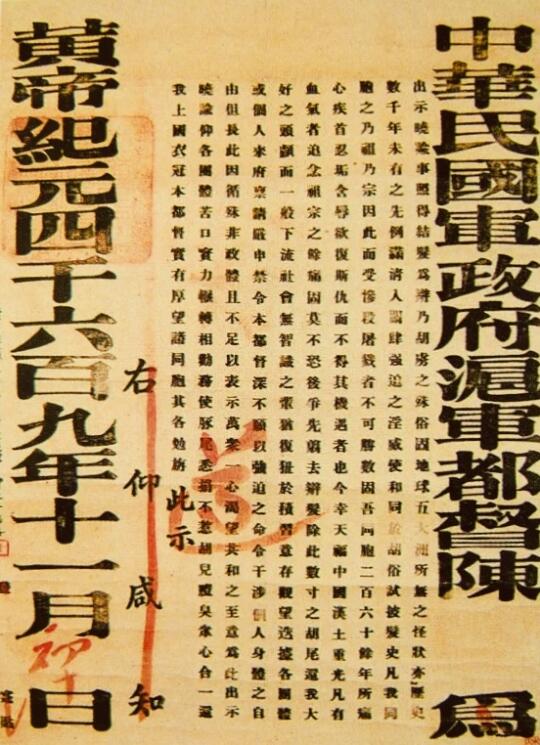 中華民國軍政府滬軍都督陳 為
出示曉諭事照得結髮為辮乃胡虜之殊俗固地球五大洲所無之怪狀亦歷史
數千年未有之先例滿清入關肆強迫之淫威使和同於胡俗試披髮史凡我同
胞之乃祖乃宗因此而受慘殺屠戮者不可勝數固吾同胞二百六十餘年所痛
心疾首忍垢含辱欲復斯仇而不得其機遇者也今幸天福中國漢土重光凡有
血氣者追念祖宗之餘痛固莫不恐後爭先剪去辮髮除此數寸之胡尾還我大
好之頭顱而一般下流社會無智識之輩猶復狃於積習意存觀望迭據各團體
或個人來府稟請嚴申禁令本都督深不願以強迫之命令干涉個人身體之自
由但長此因循殊非政體且不足以表示萬衆一心渴望共和之至意為此出示
曉諭仰各團體苦口實力輾轉相勸務使豚尾悉捐不惹胡兒膻臭衆心合一還
我上國衣冠本都督實有厚望諸同胞其各勉旃
此示
右仰咸知
黃帝紀元四千六百九年十一月初十日